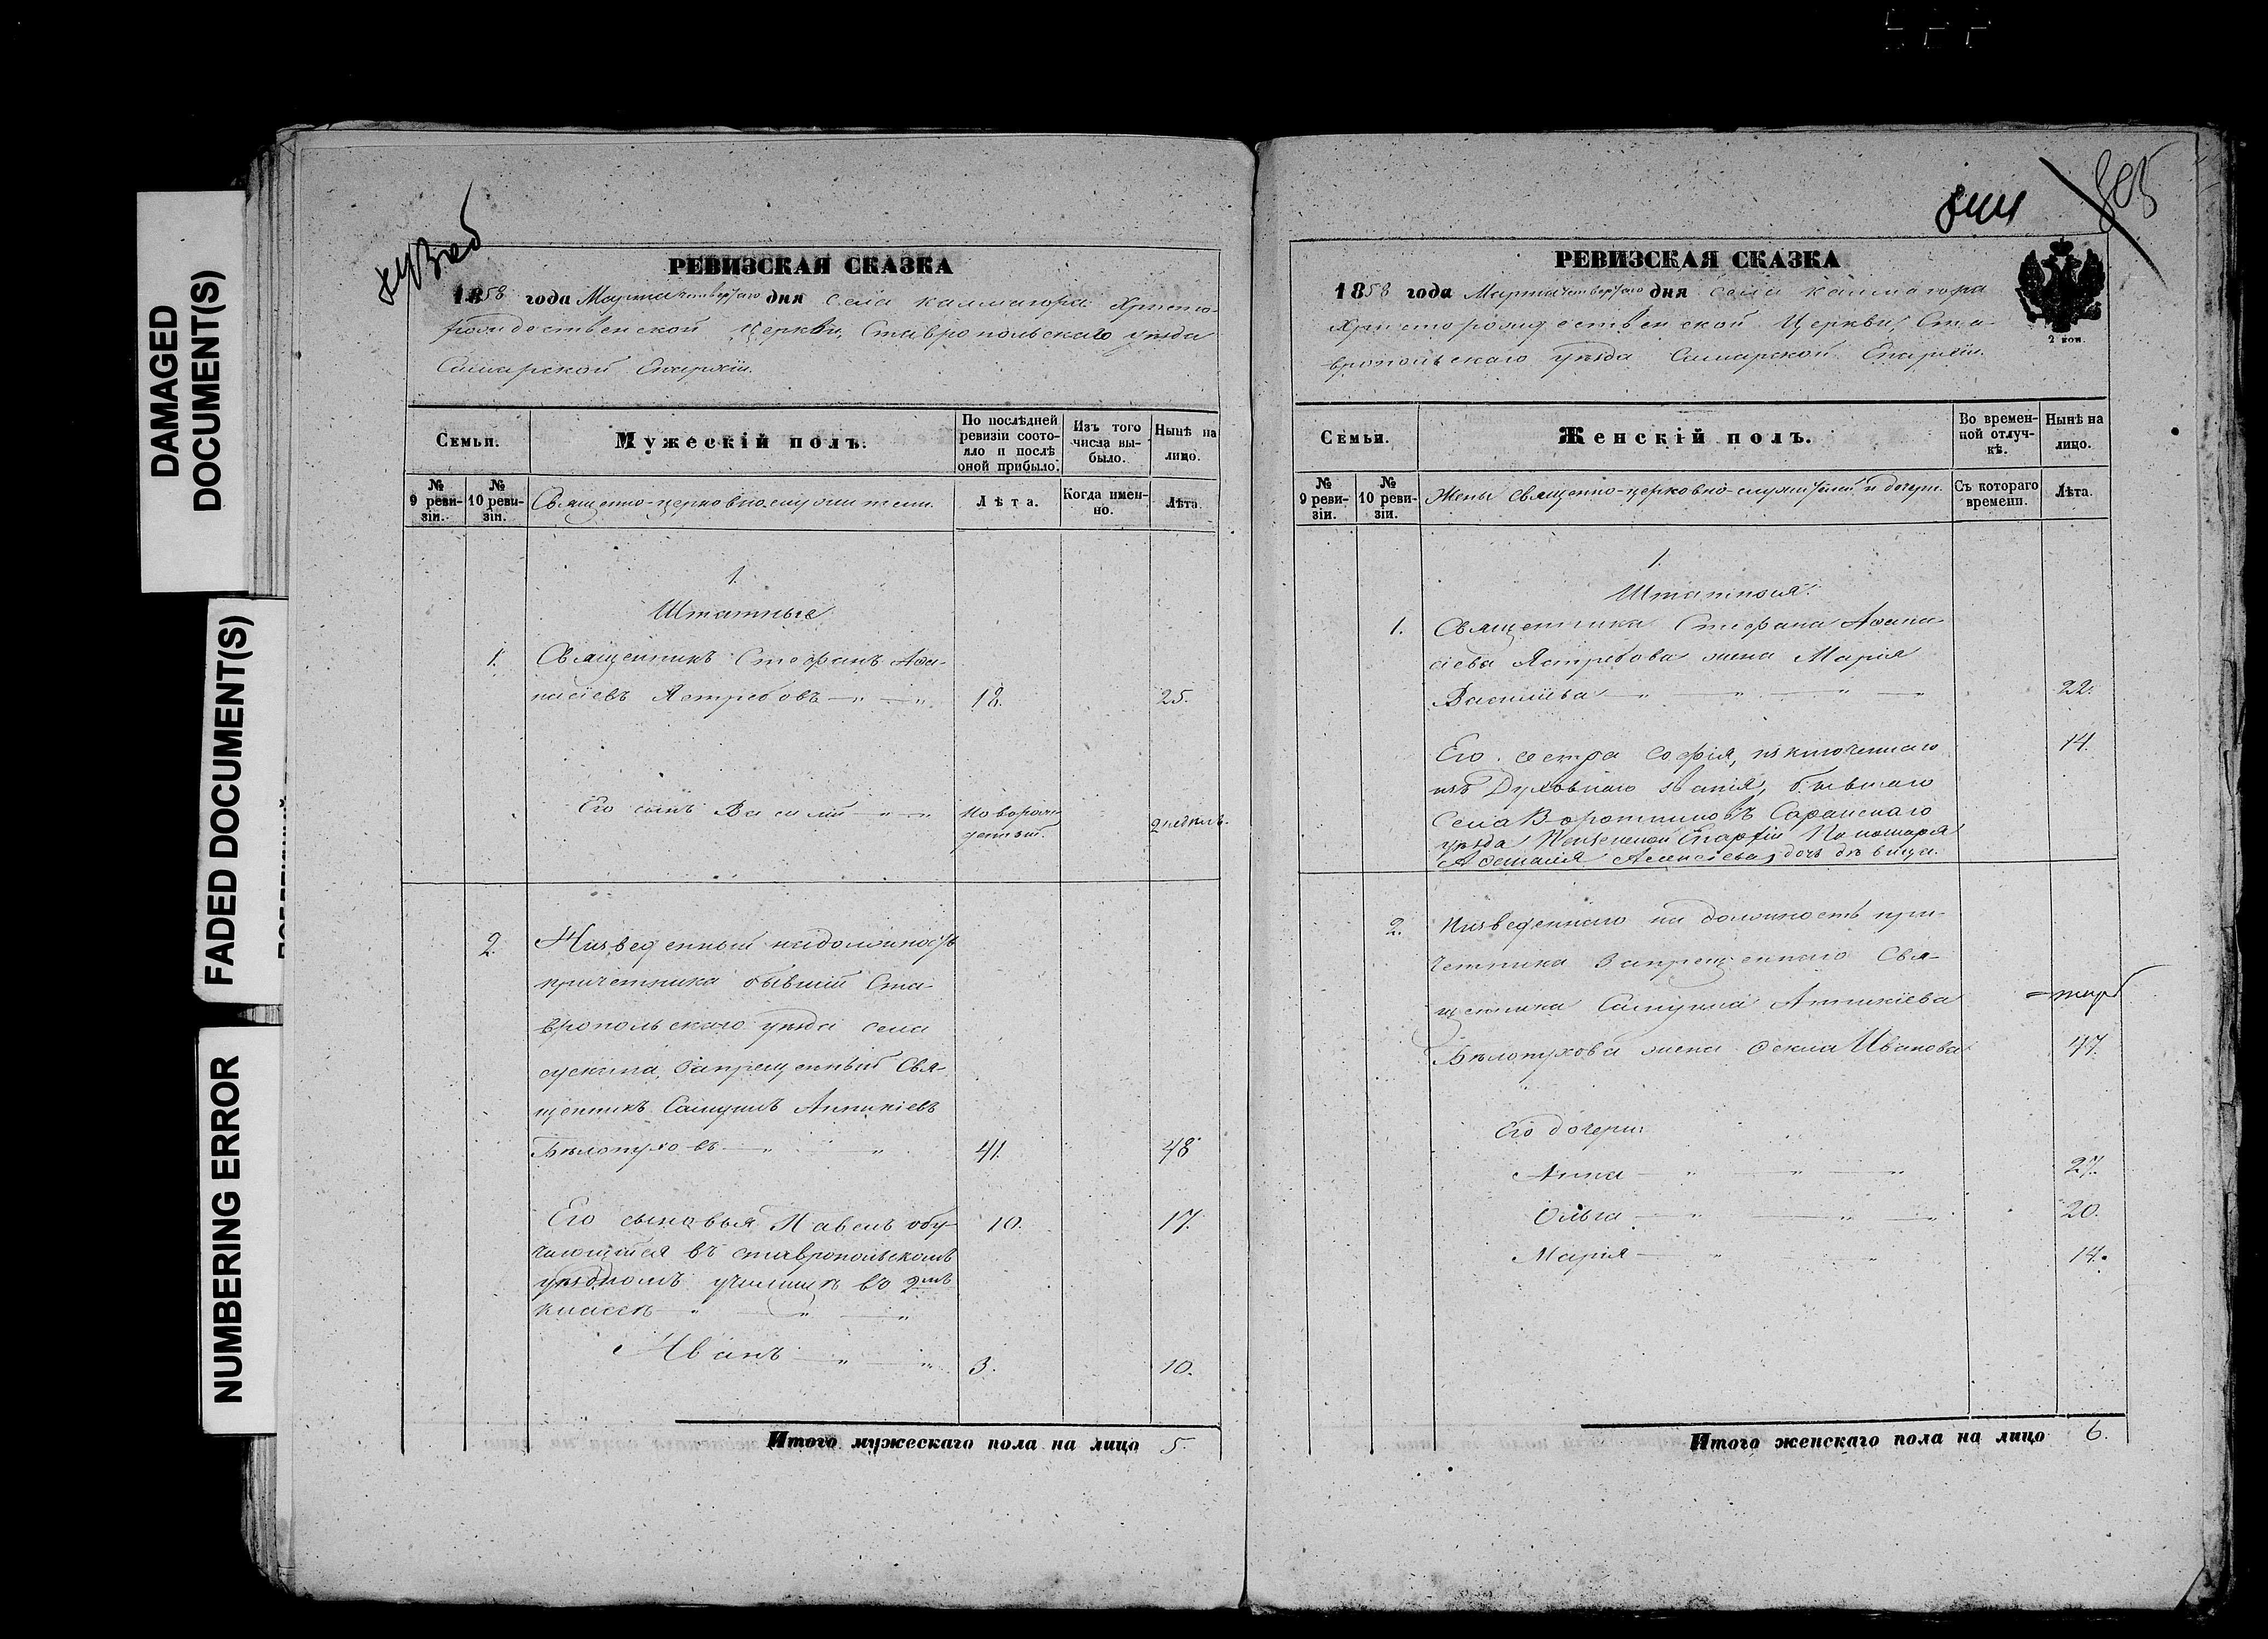 DAMAGED
DOCUMENT(S)
FADED DOCUMENT(S)
NUMBERING ERROR
РЕВИЗСКАЯ СКАЗКА
1858 года Марта четвертаго дня села калмагора Христо-
рождественской Церкви, Ставропольскаго уѣзда
Самарской Епархіи.
Семьи.
Мужескій полъ.
По послѣдней ревизіи состояло и послѣ оной прибыло.
Изъ того числа выбыло.
Нынѣ на лицо.
№ 9 ревизіи.
№ 10 ревизіи.
Священно-церковнослужители.
Лѣта.
Когда именно.
Лѣта.
1.
Штатные
1. Священникъ Стефанъ Аѳа-
насіевъ Ястребовъ 18. 25.
Его сынъ Василій новорож-
денный. 2 недѣль.
2. Низведенный на должность
причетника бывшій Ста-
вропольскаго уѣзда села
сускана, Запрещенный Свя-
щенникъ Самуилъ Аникіевъ
Бѣлопуховъ 41. 48
Его сыновья Павелъ обу- 10. 17.
чающійся въ ставропольскомъ
уѣздномъ училищѣ во 2мъ
классѣ
Иванъ 3. 10.
Итого мужескаго пола на лицо 5.
844
805
РЕВИЗСКАЯ СКАЗКА
1858 года Марта четвертаго дня села калмагора
Христорождественской Церкви, Ста-
вропольскаго уѣзда Самарской Епархіи.
2 коп.
Семьи.
Женскій полъ.
Во временной отлучкѣ.
Нынѣ на лицо.
№ 9 ревизіи.
№ 10 ревизіи.
Жены священно-церковно-служителей и дочери.
Съ котораго времени.
Лѣта.
1.
Штатныя.
1. Священника Стефана Аѳана-
сіева Ястребова жена Марія
Васильева 22.
Его сестра Софія, исключеннаго 14.
изъ Духовнаго званія, бывшаго
Села Воротниковъ Саранскаго
уѣзда Пензенской Епархіи Пономаря
Аѳанасія Алексѣева, дочь дѣвица.
2. Низведеннаго на должность при-
четника Запрещеннаго Свя-
щенника Самуила Аникіева
Бѣлопухова жена Ѳекла Иванова 47.
Его дочери:
Анна 27.
Ольга 20.
Марія 14.
Итого женскаго пола на лицо 6.